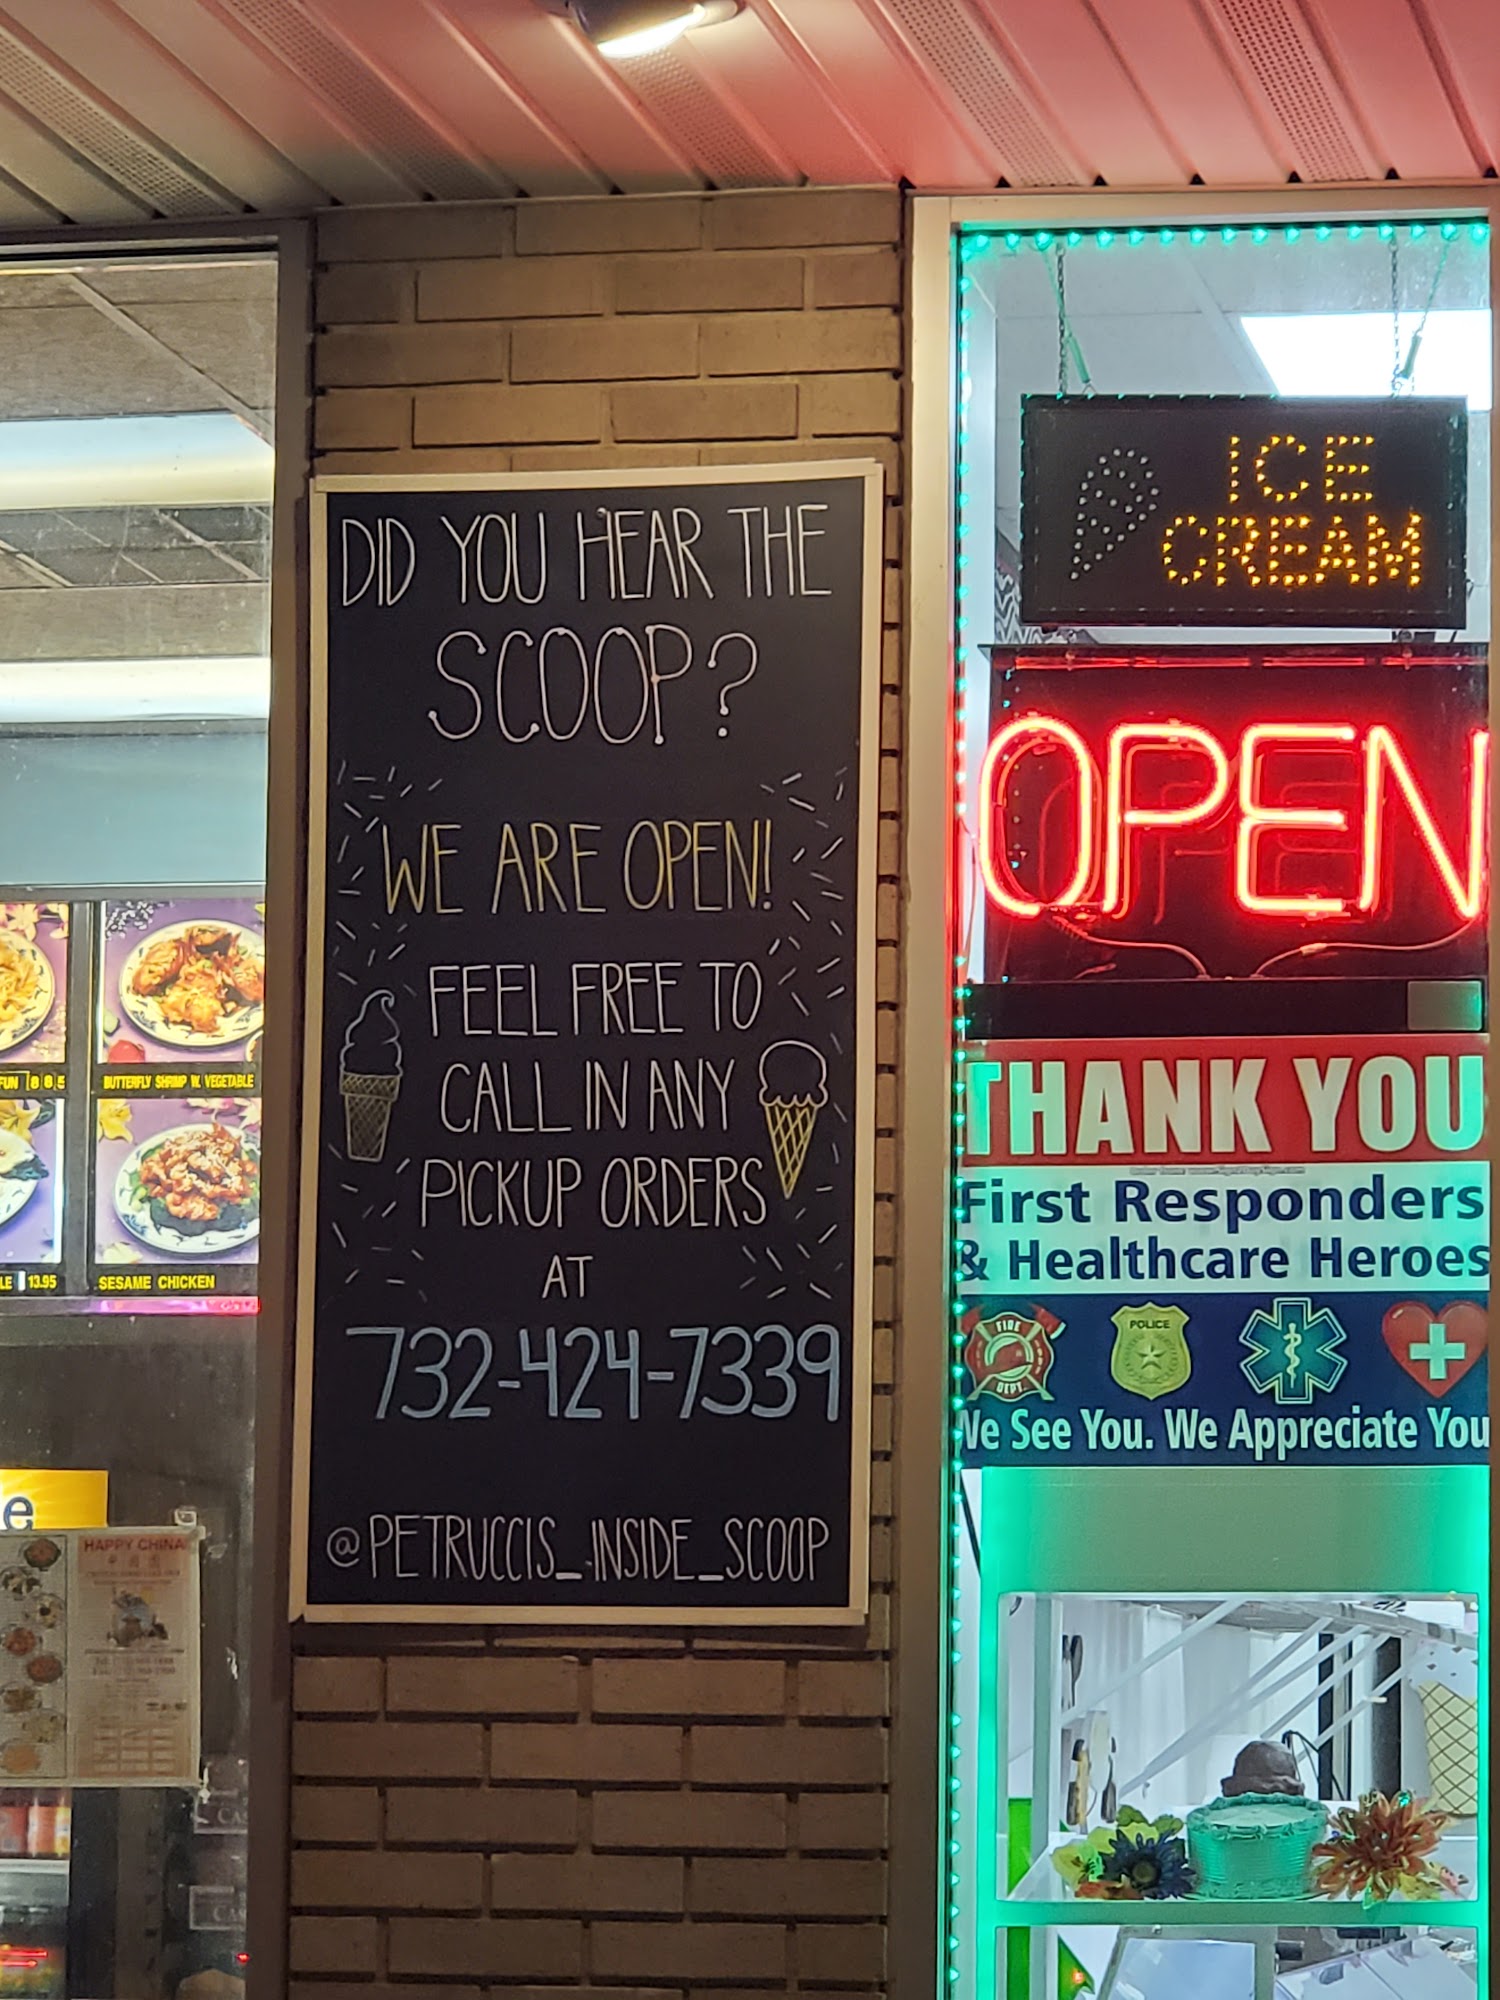 DID YOU HEAR THE
SCOOP?
WE ARE OPEN!
FEEL FREE TO
CALL IN ANY
PICKUP ORDERS
AT
732-424-7339
@PETRUCCIS_INSIDE_SCOOP
ICE
CREAM
OPEN
THANK YOU
First Responders
& Healthcare Heroes
FIRE
DEPT.
POLICE
We See You. We Appreciate You
FUN 8.85
BUTTERFLY SHRIMP W. VEGETABLE
LE 13.95
SESAME CHICKEN
e
HAPPY CHINA